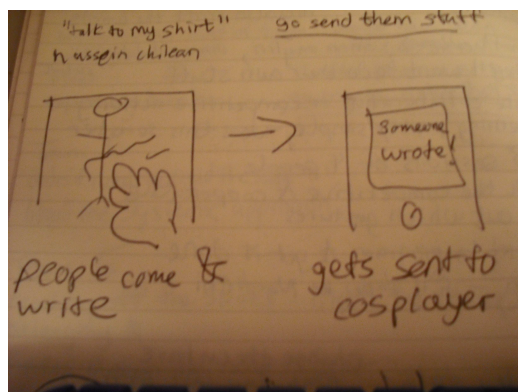 "talk to my shirt"
hussein chilean
go send them stuff
Someone
wrote!
people come &
write
gets sent to
cosplayer